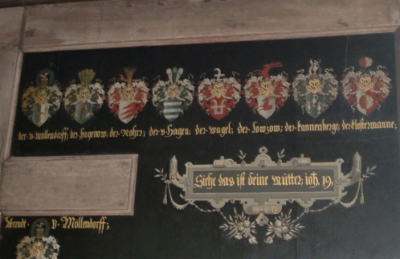 der·v·möllendorff; der·hagenow; der·Rohr; der·v·Hagen; der·wagel; der·Lowzow; der·tannenberg; der·klostermanne;
Siehe das ist deine mütter; joh, 19,
Arendt· v· Möllendorff;